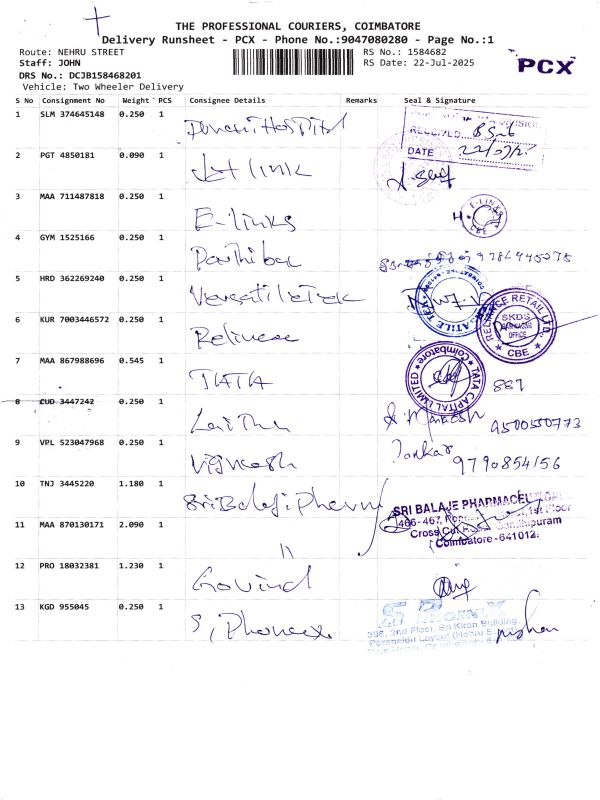 THE PROFESSIONAL COURIERS, COIMBATORE
Delivery Runsheet - PCX - Phone No.:9047080280 - Page No.:1
Route: NEHRU STREET
RS No.: 1584682
Staff: JOHN
RS Date: 22-Jul-2025
PCX
DRS No.: DCJB158468201
Vehicle: Two Wheeler Delivery
S No Consignment No Weight PCS Consignee Details Remarks Seal & Signature
1 SLM 374645148 0.250 1 Hospital
RECEIVED
DATE 22/07/25
2 PGT 4850181 0.090 1 Jet link
3 MAA 711487818 0.250 1 E-links
E-LINKS
CBE
4 GYM 1525166 0.250 1 Parthiban
5 HRD 362269240 0.250 1 VersatileTek
6 KUR 7003446572 0.250 1 Reliance
RELIANCE RETAIL LTD.
SKDS
OFFICE
CBE
7 MAA 867988696 0.545 1 TATA
TATA CAPITAL LIMITED
Coimbatore
887
8 CUD 3447242 0.250 1 Lalitha
9500550773
9 VPL 523047968 0.250 1 Vignesh
9790854156
10 TNJ 3445220 1.180 1 Sri Balaji Pharm
SRI BALAJE PHARMACEUTICALS
466-467, 1st Floor
Cross Cut Road Gandhipuram
Coimbatore-641012.
11 MAA 870130171 2.090 1 "
12 PRO 18032381 1.230 1 Govind
13 KGD 955045 0.250 1 S, Phoneex
S PHOENIX
2nd Floor, Sri Kiran Building
Layout (Nehru Street)